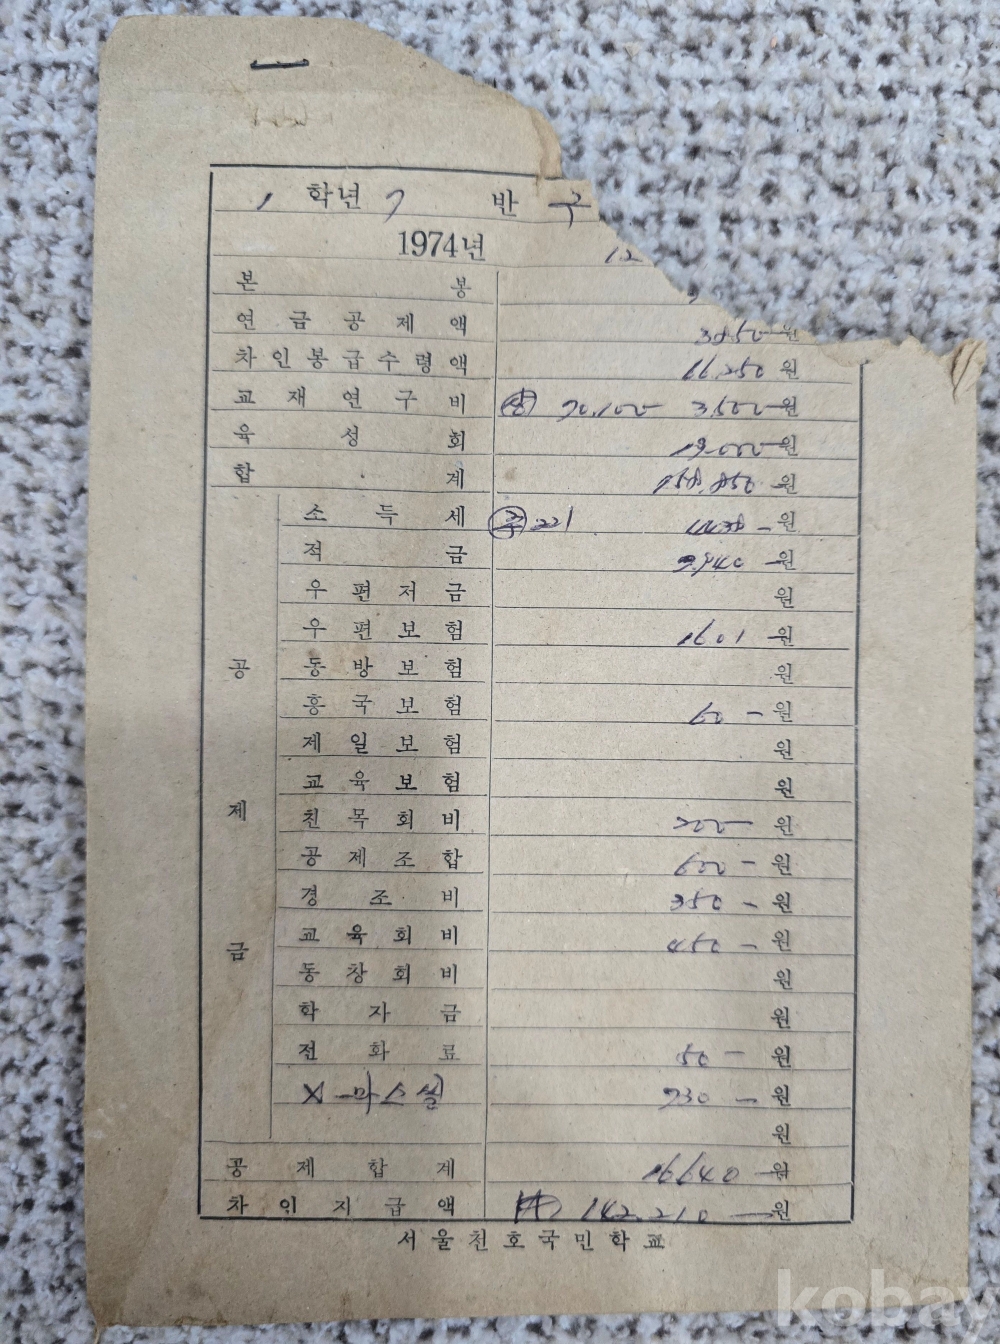 1 학년 7 반 구
1974년 12
본봉
연금공제액 3850 원
차인봉급수령액 66.250 원
교재연구비 70.100 3.500 원
육성회 19.000 원
합계 158.850 원
공제금
소득세 221 원
적금 원
우편저금 원
우편보험 1601 원
동방보험 원
흥국보험 60 - 원
제일보험 원
교육보험 원
친목회비 200 원
공제조합 600 - 원
경조비 350 - 원
교육회비 450 - 원
동창회비 원
학자금 원
전화료 50 - 원
X-마스씰 730 - 원
원
공제합계 16640 원
차인지급액 142.210 원
서울천호국민학교
kobay